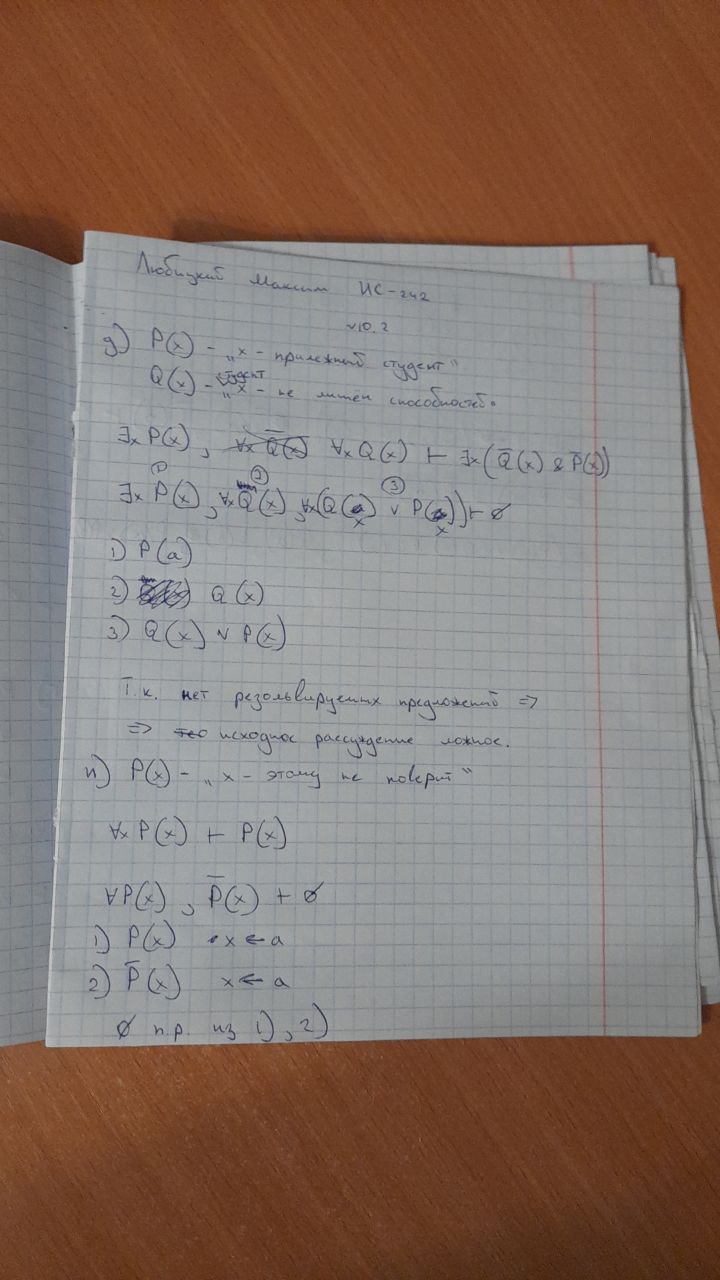 Любицкий Максим ИС-242
№10.2
д) P(x) - „x - прилежный студент"
Q(x) - „x - студент не лишён способностей"
∃x P(x), ∀x Q(x) ⊢ ∃x(Q̅(x) & P̅(x))
① ② ③
∃x P(x), ∀x Q(x), ∀x(Q(x) ∨ P(x)) ⊢ ∅
1) P(a)
2) Q(x)
3) Q(x) ∨ P(x)
Т.к. нет резольвируемых предложений =>
=> исходное рассуждение ложное.
и) P(x) - „x - этому не поверит"
∀x P(x) ⊢ P(x)
∀P(x), P̅(x) ⊢ ∅
1) P(x) x ← a
2) P̅(x) x ← a
∅ п.р. из 1), 2)